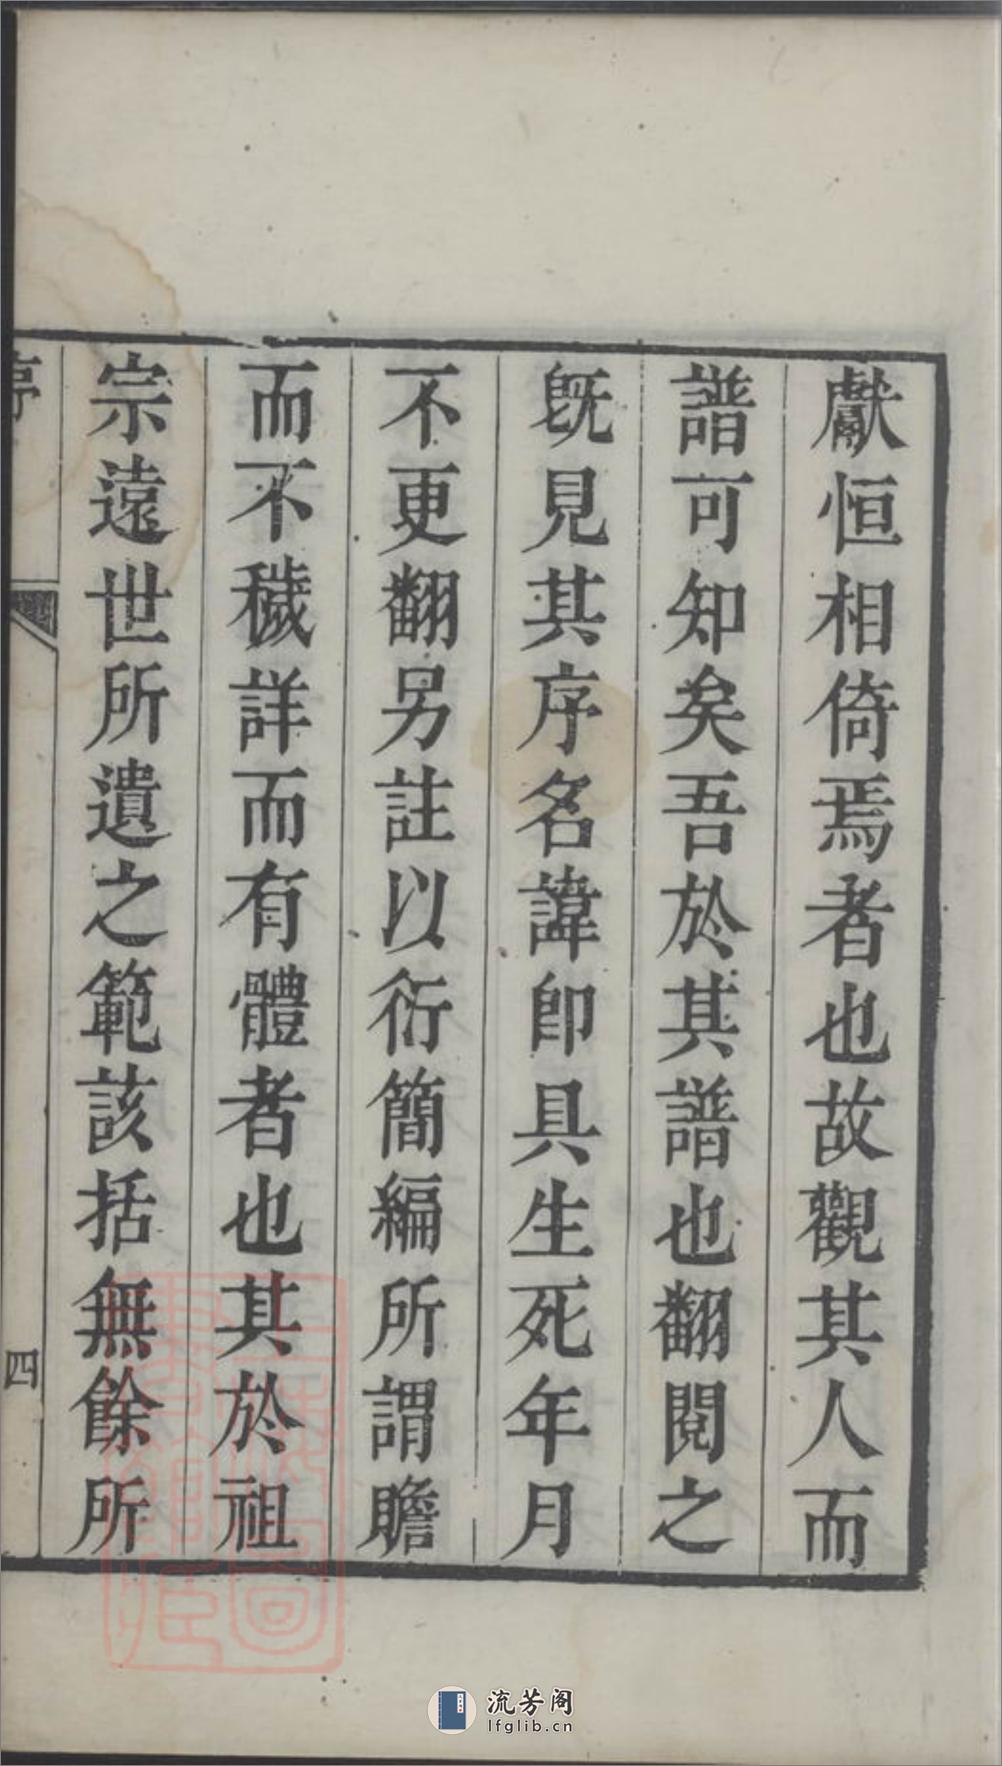 獻恒相倚焉者也故觀其人而
譜可知矣吾於其譜也翻閱之
旣見其序名諱卽具生死年月
不更翻另註以衍簡編所謂贍
而不穢詳而有體者也其於祖
宗遠世所遺之範該括無餘所
序
四
流芳阁
lfglib.cn